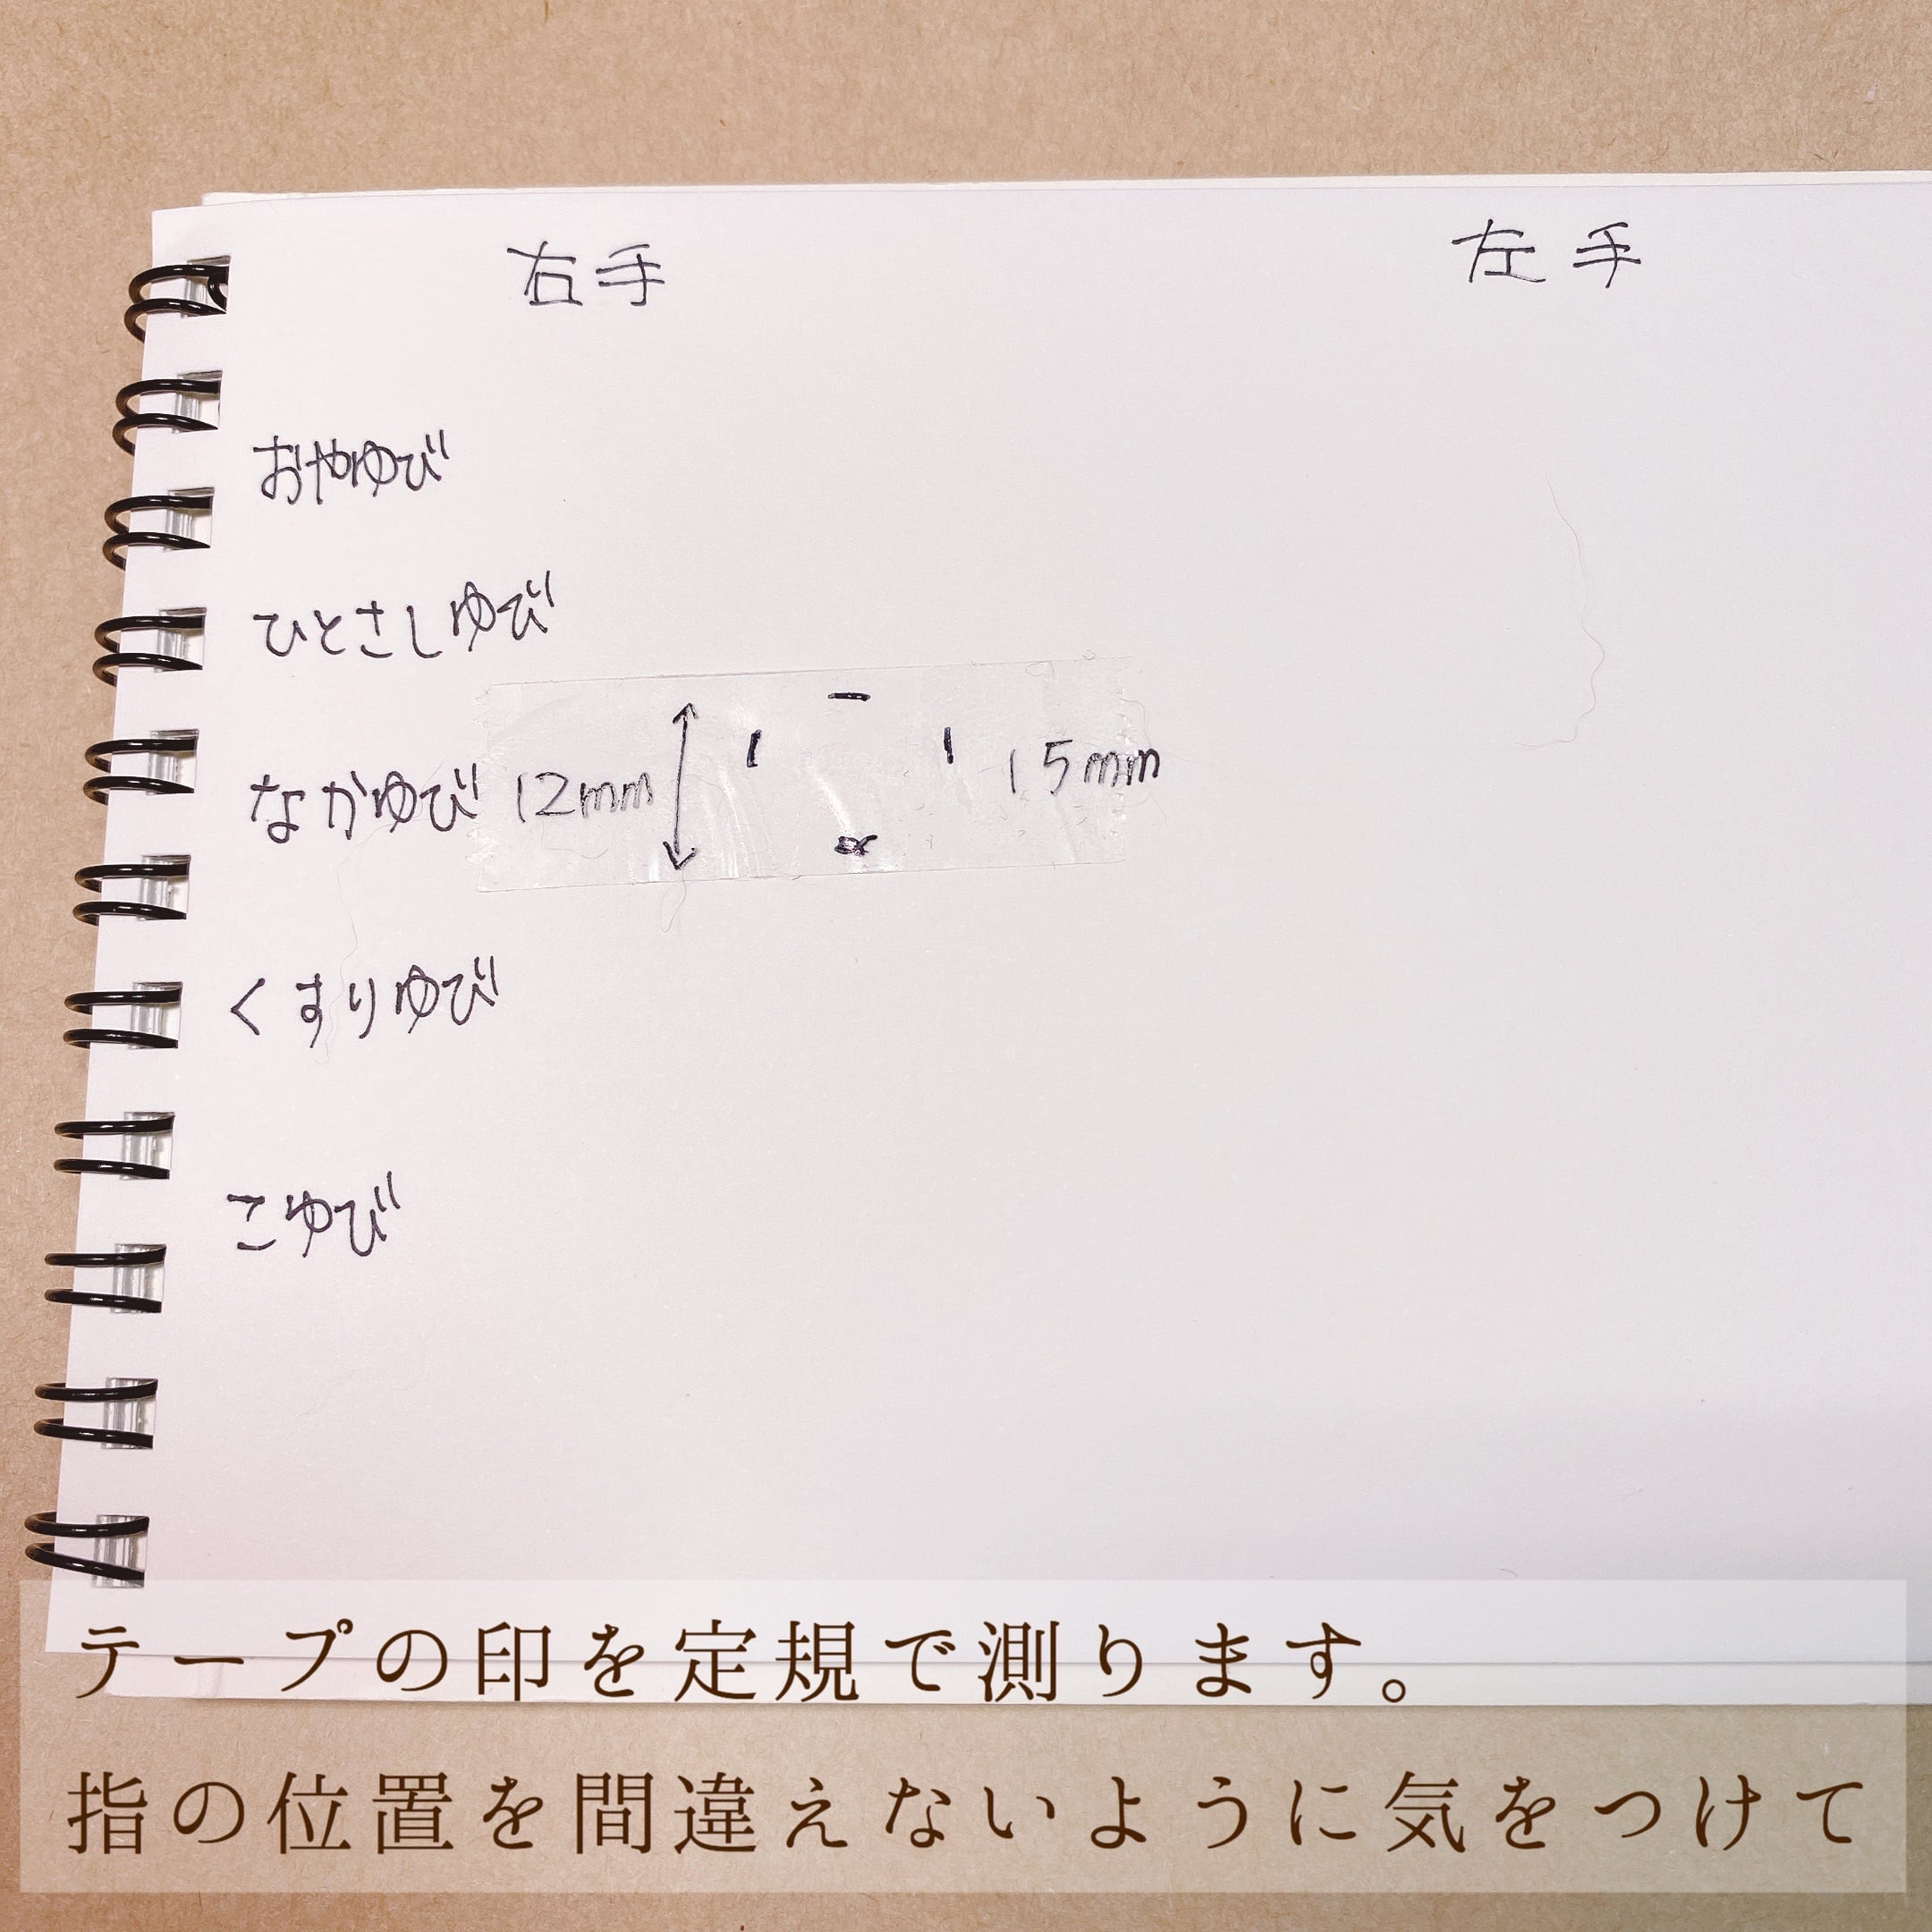 右手 左手
おやゆび
ひとさしゆび
なかゆび 12mm 15mm
くすりゆび
こゆび
テープの印を定規で測ります。
指の位置を間違えないように気をつけて